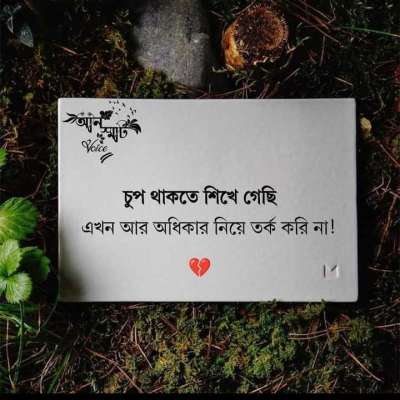 আন স্মার্ট
Voice
চুপ থাকতে শিখে গেছি
এখন আর অধিকার নিয়ে তর্ক করি না!